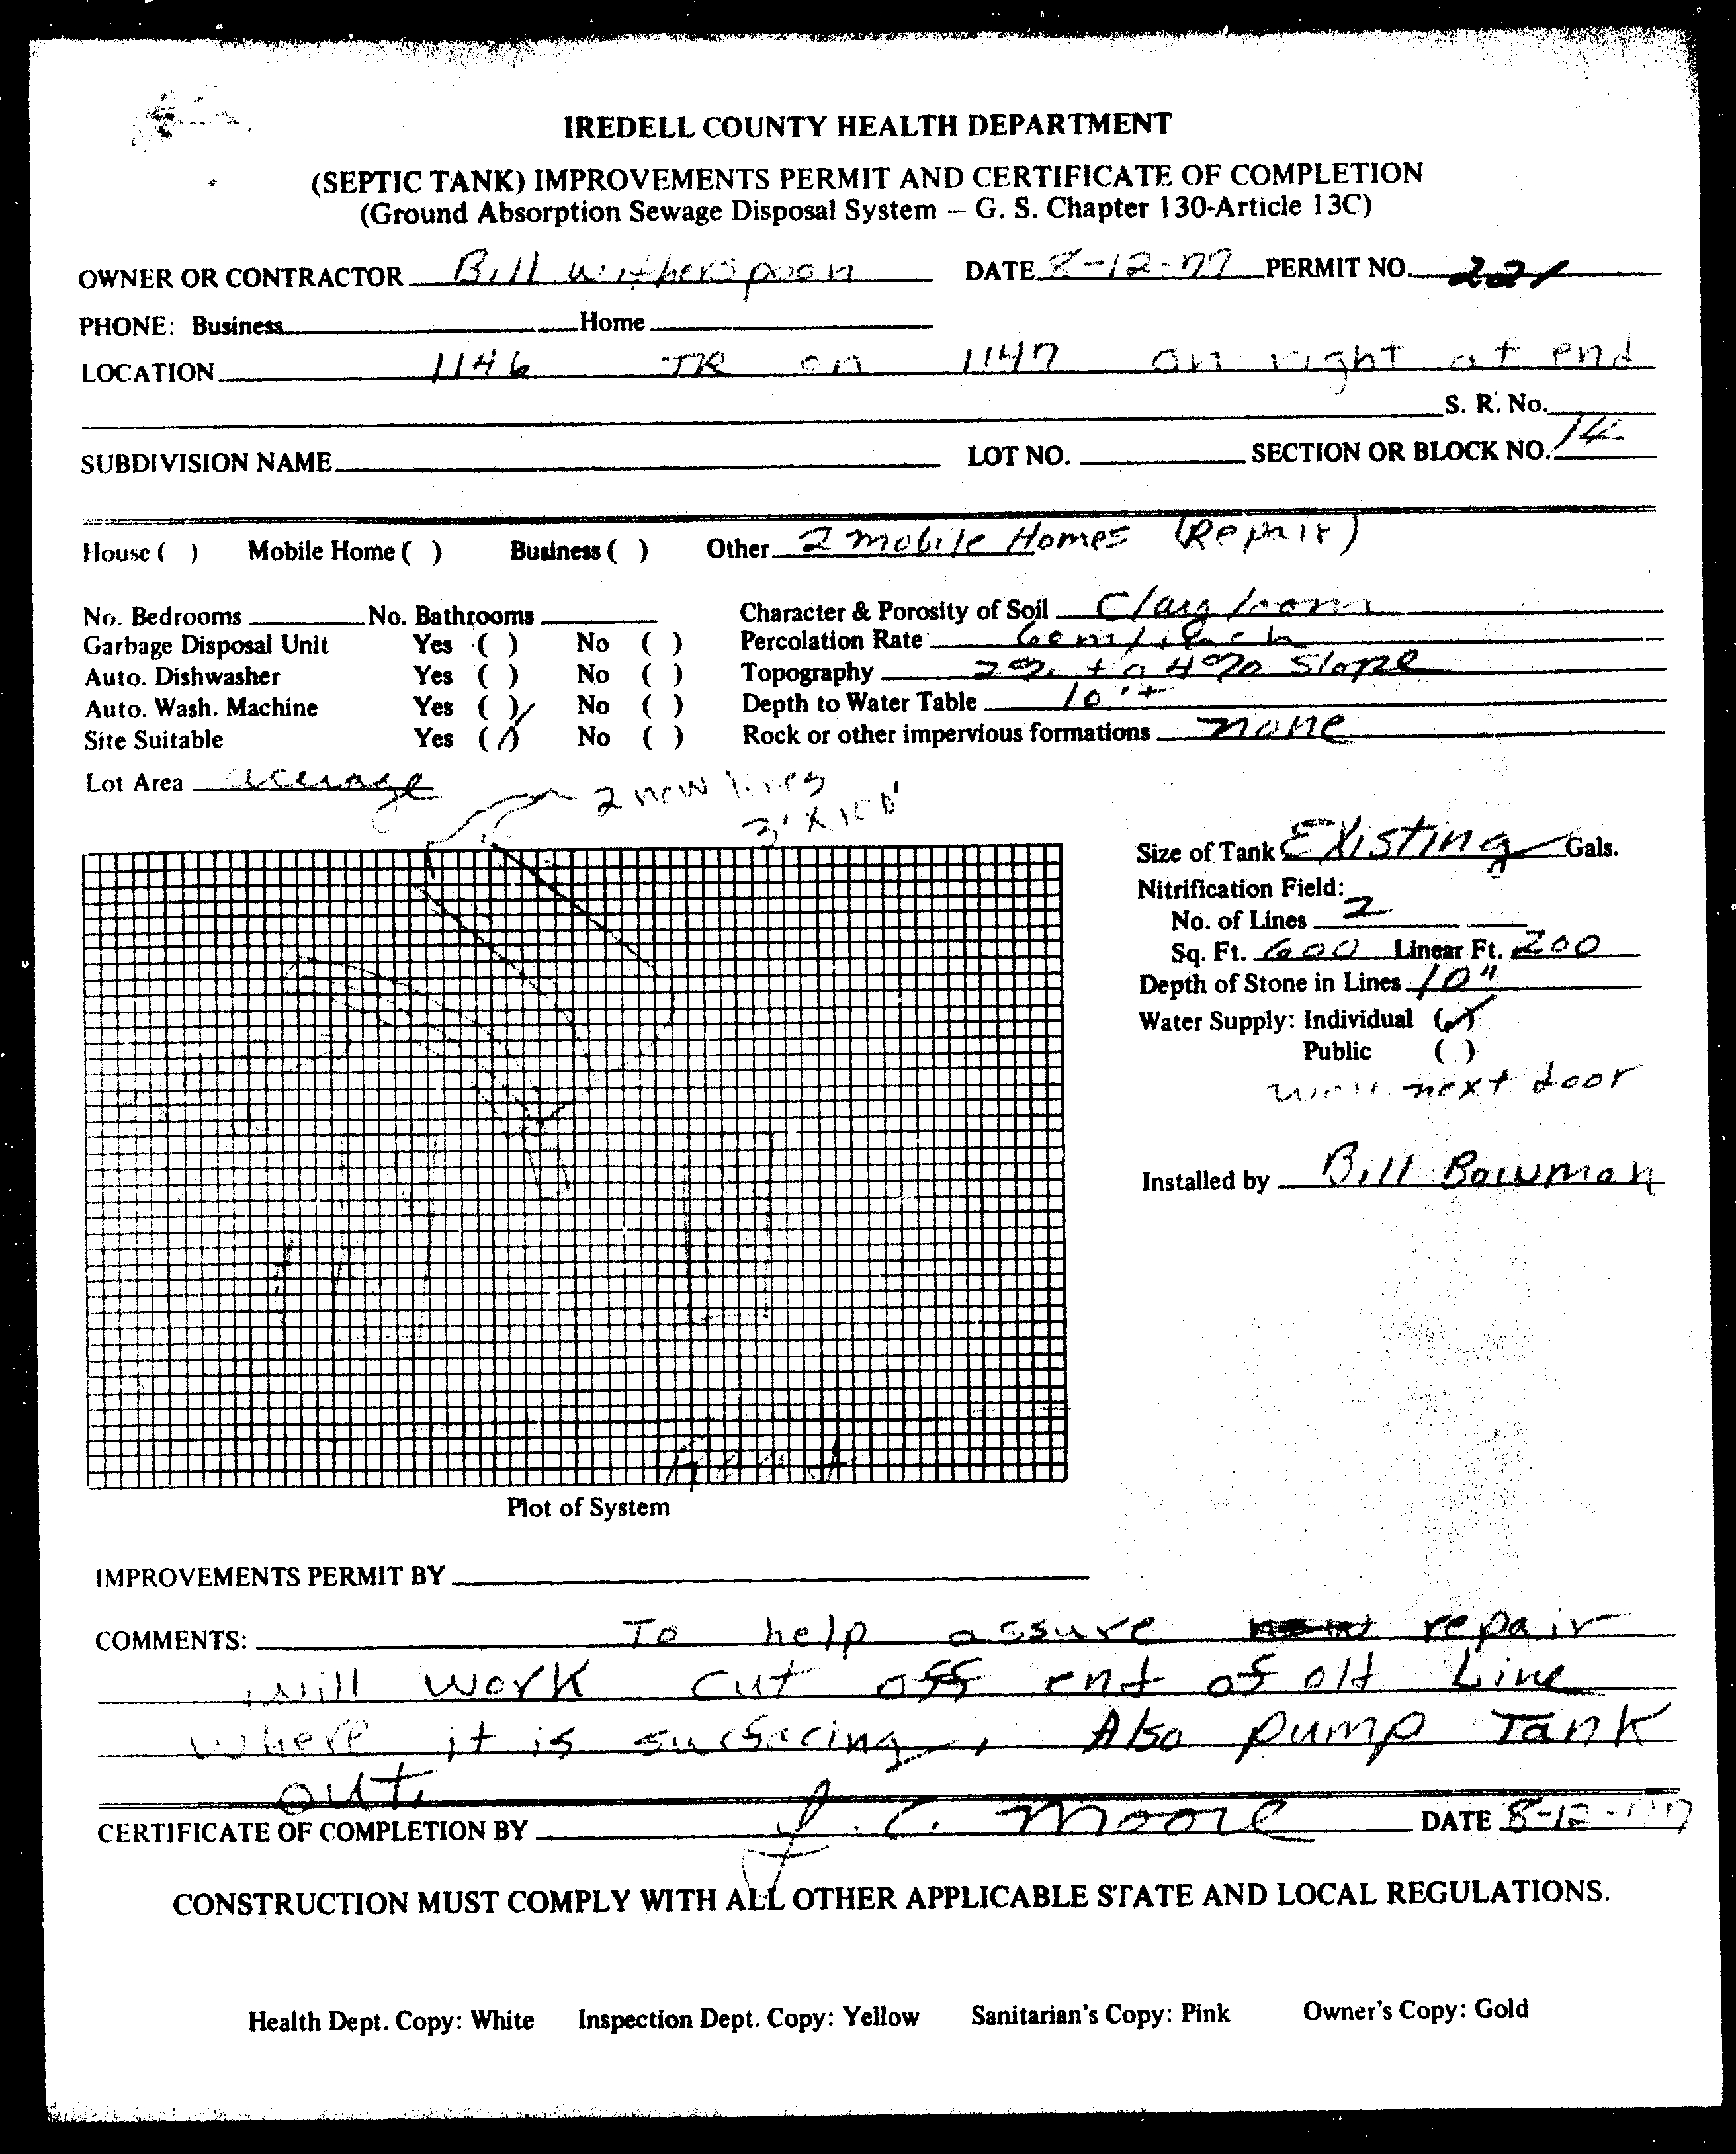 IREDELL COUNTY HEALTH DEPARTMENT
(SEPTIC TANK) IMPROVEMENTS PERMIT AND CERTIFICATE OF COMPLETION
(Ground Absorption Sewage Disposal System – G. S. Chapter 130-Article 13C)
OWNER OR CONTRACTOR Bill witherspoon DATE 8-12-77 PERMIT NO. 221
PHONE: Business Home
LOCATION 1146 TR on 1147 on right at end
S. R. No.
SUBDIVISION NAME LOT NO. SECTION OR BLOCK NO. 14
House ( ) Mobile Home ( ) Business ( ) Other 2 mobile Homes (Repair)
No. Bedrooms No. Bathrooms Character & Porosity of Soil Clay loam
Garbage Disposal Unit Yes ( ) No ( ) Percolation Rate
Auto. Dishwasher Yes ( ) No ( ) Topography 2% to 4% Slope
Auto. Wash. Machine Yes ( ) No ( ) Depth to Water Table 10'+
Site Suitable Yes (/) No ( ) Rock or other impervious formations none
Lot Area acerage
2 new lines
3' x 100'
Size of Tank Existing Gals.
Nitrification Field:
No. of Lines 2
Sq. Ft. 600 Linear Ft. 200
Depth of Stone in Lines 10"
Water Supply: Individual (✓)
Public ( )
well next door
Installed by Bill Bowman
Plot of System
IMPROVEMENTS PERMIT BY
COMMENTS: To help assure repair
will work cut off end of old Line
where it is surfacing, Also pump Tank
out.
CERTIFICATE OF COMPLETION BY J. C. Moore DATE 8-12-77
CONSTRUCTION MUST COMPLY WITH ALL OTHER APPLICABLE STATE AND LOCAL REGULATIONS.
Health Dept. Copy: White Inspection Dept. Copy: Yellow Sanitarian's Copy: Pink Owner's Copy: Gold